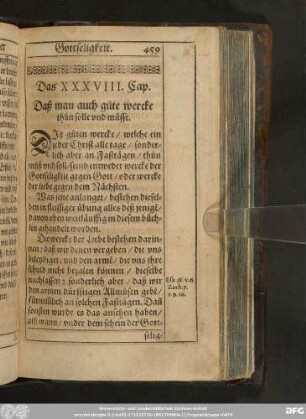 Gottseligkeit. 459
Das XXXVIII. Cap.
Daß man auch gute wercke
thun solle vnd müsse.
Die guten wercke / welche ein
jeder Christ alle tage / sonder-
lich aber an Fasttägen / thun
muß vnd soll / seind entweder wercke der
Gottseligkeit gegen Gott / oder wercke
der liebe gegen dem Nächsten.
Was jene anlanget / bestehen diesel-
ben in fleissiger übung alles deß jenigē /
davon oben weitläufftig in diesem büch-
lin gehandelt worden.
Die wercke der Liebe bestehen darin-
nen: daß wir denen vergeben / die vns
beleidiget: vnd den armē / die vns ihre
schuld nicht bezalen können / dieselbe
nachlassen: sonderlich aber / daß wir
den armen dürfftigen Allmusen gebē /
fürnemlich an solchen Fasttägen. Dañ
sonsten wurde es das ansehen haben /
als wann / vnder dem schein der Gott-
selig-
Esa. 58. v. 6.
Zach. 7.
v. 9. 10.